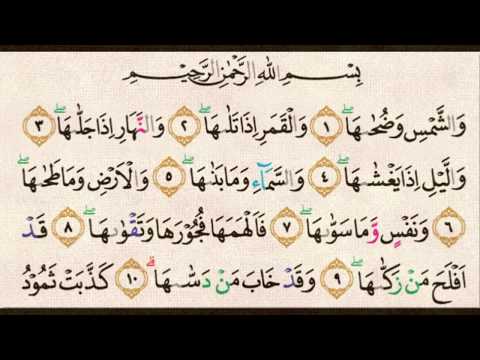 بِسْمِ اللّٰهِ الرَّحْمٰنِ الرَّحِيْمِ
وَالشَّمْسِ وَضُحٰىهَا ۖ ١ وَالْقَمَرِ اِذَا تَلٰىهَا ۖ ٢ وَالنَّهَارِ اِذَا جَلّٰىهَا ۖ ٣
وَالَّيْلِ اِذَا يَغْشٰىهَا ۖ ٤ وَالسَّمَاۤءِ وَمَا بَنٰىهَا ۖ ٥ وَالْاَرْضِ وَمَا طَحٰىهَا ۖ
٦ وَنَفْسٍ وَّمَا سَوّٰىهَا ۖ ٧ فَاَلْهَمَهَا فُجُوْرَهَا وَتَقْوٰىهَا ۖ ٨ قَدْ
اَفْلَحَ مَنْ زَكّٰىهَا ۖ ٩ وَقَدْ خَابَ مَنْ دَسّٰىهَا ۗ ١٠ كَذَّبَتْ ثَمُوْدُ